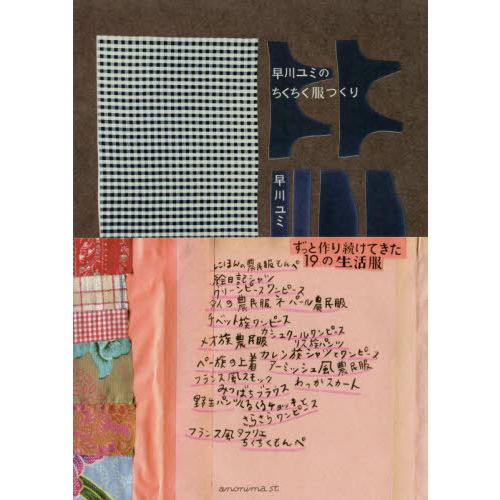 早川ユミの
ちくちく服つくり
早川ユミ
ずっと作り続けてきた
19の生活服
にほんの農民服もんぺ
絵日記シャツ
グリーンピースワンピース
タイの農民服ネパール農民服
チベット族ワンピース
カシュクールワンピース
メオ族農民服
リス族パンツ
ペー族の上着
カレン族シャツとワンピース
アーミッシュ風農民服
フランス風スモック
みつばちブラウス
わっかスカート
野生パンツ
ぐるぐるチョッキと
さらさらワンピース
フランス風タブリエ
ちくちくもんぺ
anonima st.